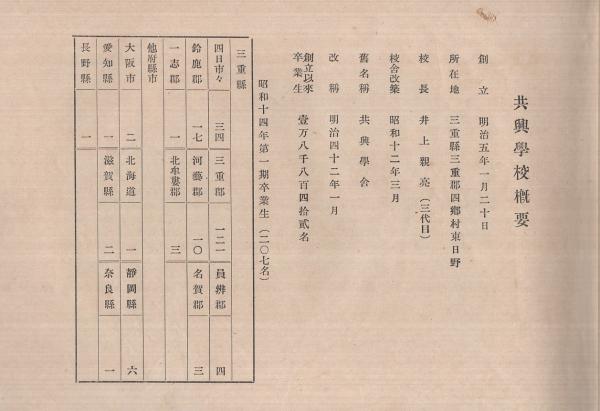 共興學校概要
創立　明治五年一月二十日
所在地　三重縣三重郡四鄕村東日野
校長　井上親亮（三代目）
校舍改築　昭和十二年三月
舊名稱　共興學舍
改稱　明治四十二年一月
創立以來卒業生　壹万八千八百四拾貳名
昭和十四年第一期卒業生（二〇七名）
三重縣
四日市々　三四　三重郡　一二一　員辨郡　四
鈴鹿郡　一七　河藝郡　一〇　名賀郡　三
一志郡　一　北牟婁郡　三
他府縣市
大阪市　二　北海道　一　靜岡縣　六
愛知縣　一　滋賀縣　二　奈良縣　一
長野縣　一